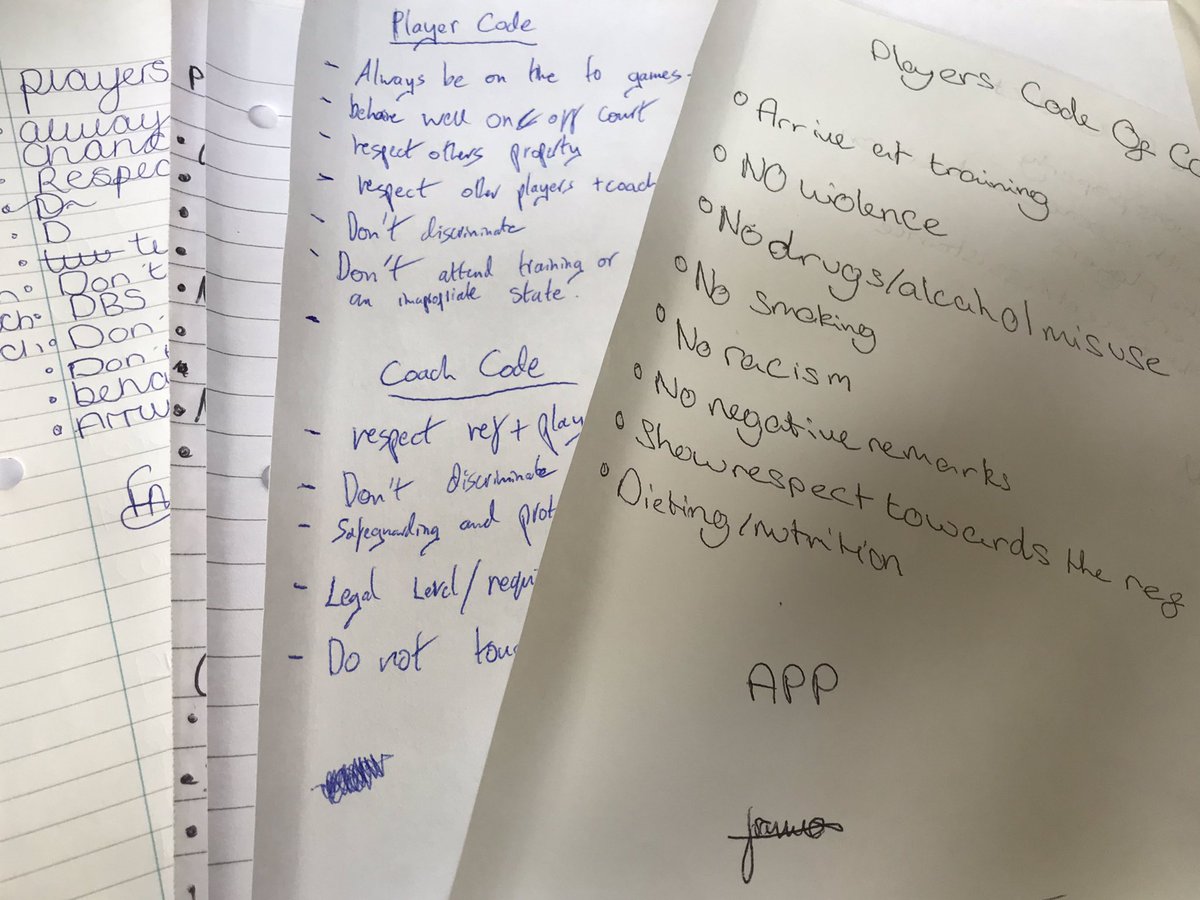 players
alway
chang
Respec
D
D
te
Don't
DBS
Don'
Don't
beha
P
Player Code
- Always be on the to games.
- behave well on & off court
- respect others property
- respect other players + coach
- Don't discriminate
- Don't attend training or
an inapropiate state.
Coach Code
- respect ref + play
- Don't discriminate
- Safeguarding and prot
- Legal Level/requi
- Do not touc
Players Code Of Co
Arrive at training
NO violence
No drugs/alcahol misuse
No smoking
No racism
No negative remarks
Show respect towards the ref
Dieting/nutrition
APP